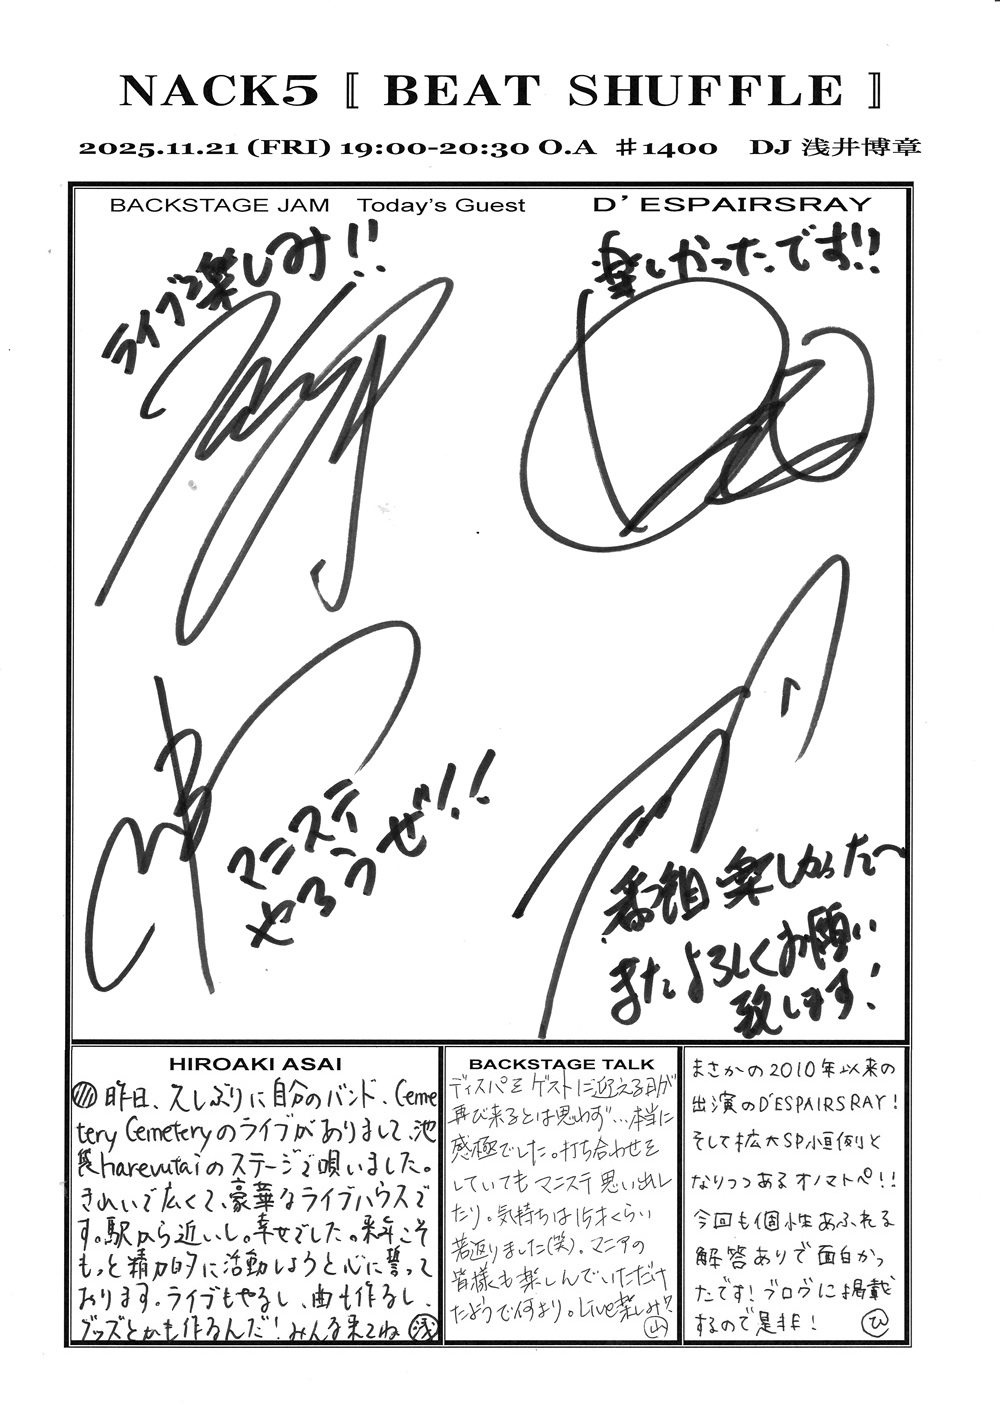 NACK5 〚 BEAT SHUFFLE 〛
2025.11.21 (FRI) 19:00-20:30 O.A ♯1400 DJ 浅井博章
BACKSTAGE JAM Today's Guest D'ESPAIRSRAY
ライブ楽しみ!!
楽しかったです!!
マニステ
やろうぜ!!
番組楽しかった〜
またよろしくお願い
致します!
HIROAKI ASAI
昨日、久しぶりに自分のバンド、Ceme
tery Cemeteryのライブがありまして、池
袋harevutaiのステージで唄いました。
きれいで広くて、豪華なライブハウスで
す。駅から近いし。幸せでした。来年こそ
もっと精力的に活動しようと心に誓って
おります。ライブもやるし、曲も作るし、
グッズとかも作るんだ!みんな来てね 浅
BACKSTAGE TALK
ディスパをゲストに迎える日が
再び来るとは思わず…本当に
感極でした。打ち合わせを
していてもマニステ思い出し
たり。気持ちは15才くらい
若返りました(笑)。マニアの
皆様も楽しんでいただけ
たようで何より。Live楽しみ!! 山
まさかの2010年以来の
出演のD'ESPAIRSRAY!
そして拡大SP恒例と
なりつつあるオノマトペ!!
今回も個性あふれる
解答ありで面白かっ
たです!ブログに掲載
するので是非! ひ